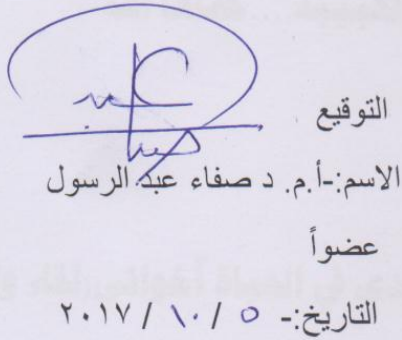 التوقيع
الاسم:-أ.م. د صفاء عبد الرسول
عضواً
التاريخ:- ٥ / ١٠ / ٢٠١٧